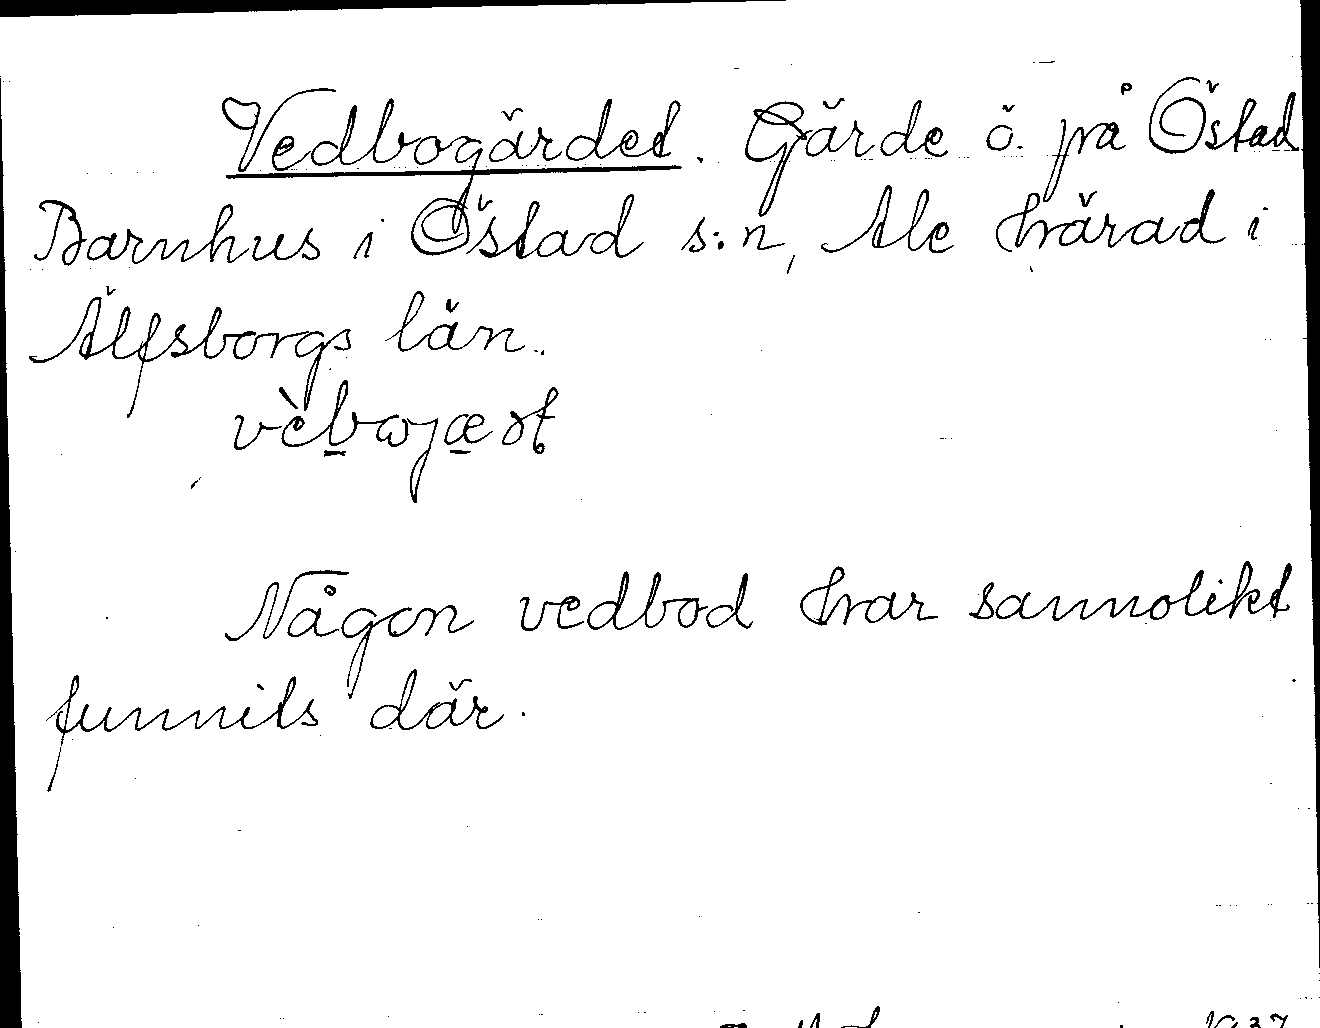 Vedbogärdet. Gärde ö. på Östad
Barnhus i Östad s:n, Ale härad i
Älfsborgs län.
Någon vedbod har sannolikt
funnits där.
1937